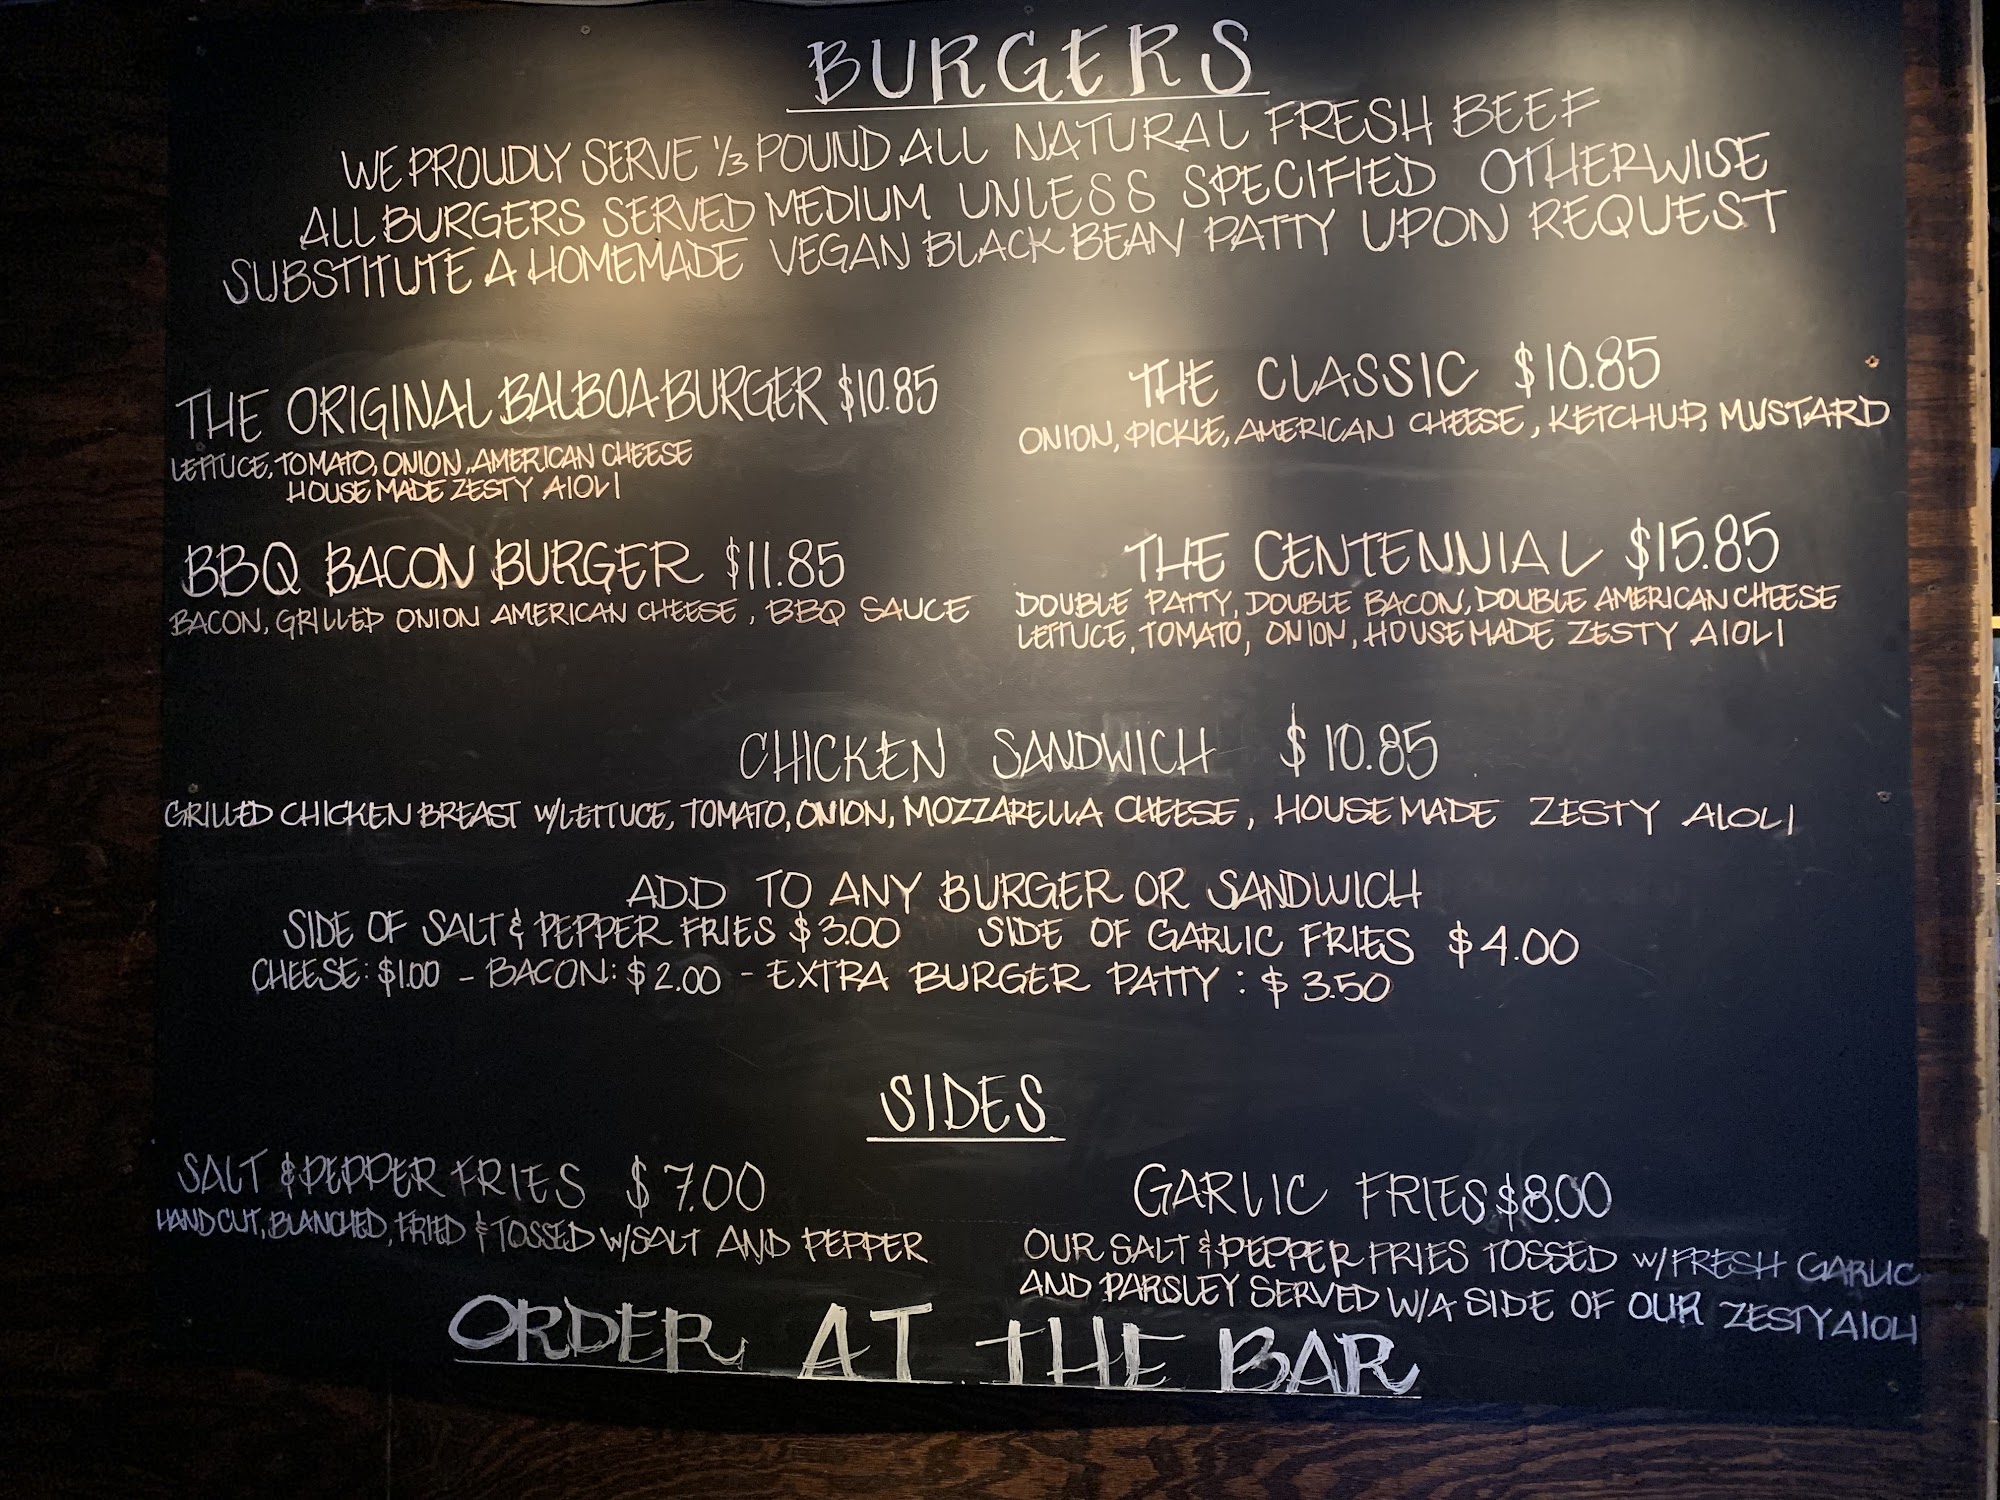 BURGERS
WE PROUDLY SERVE 1/3 POUND ALL NATURAL FRESH BEEF
ALL BURGERS SERVED MEDIUM UNLESS SPECIFIED OTHERWISE
SUBSTITUTE A HOMEMADE VEGAN BLACK BEAN PATTY UPON REQUEST
THE ORIGINAL BALBOA BURGER $10.85
LETTUCE, TOMATO, ONION, AMERICAN CHEESE
HOUSE MADE ZESTY AIOLI
THE CLASSIC $10.85
ONION, PICKLE, AMERICAN CHEESE, KETCHUP, MUSTARD
BBQ BACON BURGER $11.85
BACON, GRILLED ONION AMERICAN CHEESE, BBQ SAUCE
THE CENTENNIAL $15.85
DOUBLE PATTY, DOUBLE BACON, DOUBLE AMERICAN CHEESE
LETTUCE, TOMATO, ONION, HOUSE MADE ZESTY AIOLI
CHICKEN SANDWICH $10.85
GRILLED CHICKEN BREAST W/LETTUCE, TOMATO, ONION, MOZZARELLA CHEESE, HOUSE MADE ZESTY AIOLI
ADD TO ANY BURGER OR SANDWICH
SIDE OF SALT & PEPPER FRIES $3.00 SIDE OF GARLIC FRIES $4.00
CHEESE: $1.00 - BACON: $2.00 - EXTRA BURGER PATTY: $3.50
SIDES
SALT & PEPPER FRIES $7.00
HAND CUT, BLANCHED, FRIED & TOSSED W/SALT AND PEPPER
GARLIC FRIES $8.00
OUR SALT & PEPPER FRIES TOSSED W/FRESH GARLIC
AND PARSLEY SERVED W/A SIDE OF OUR ZESTY AIOLI
ORDER AT THE BAR